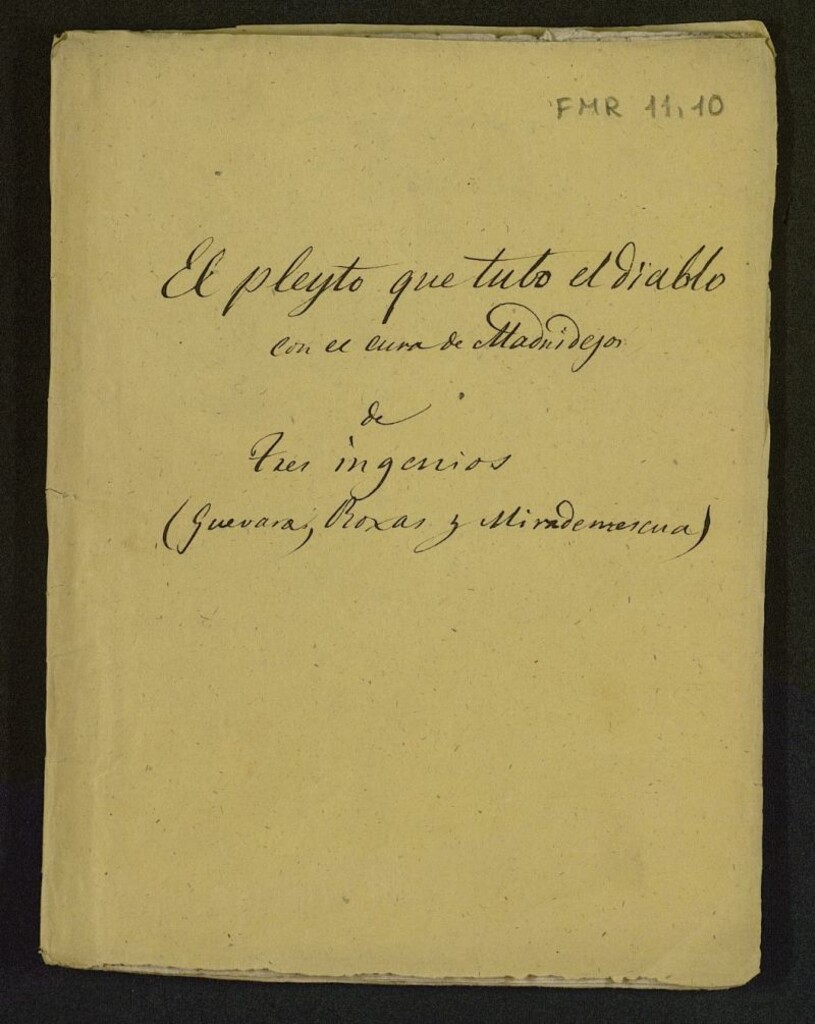 FMR 11,10
El pleyto que tubo el diablo
con el cura de Madridejos
de
tres ingenios
(Guevara, Roxas y Mirademescua)